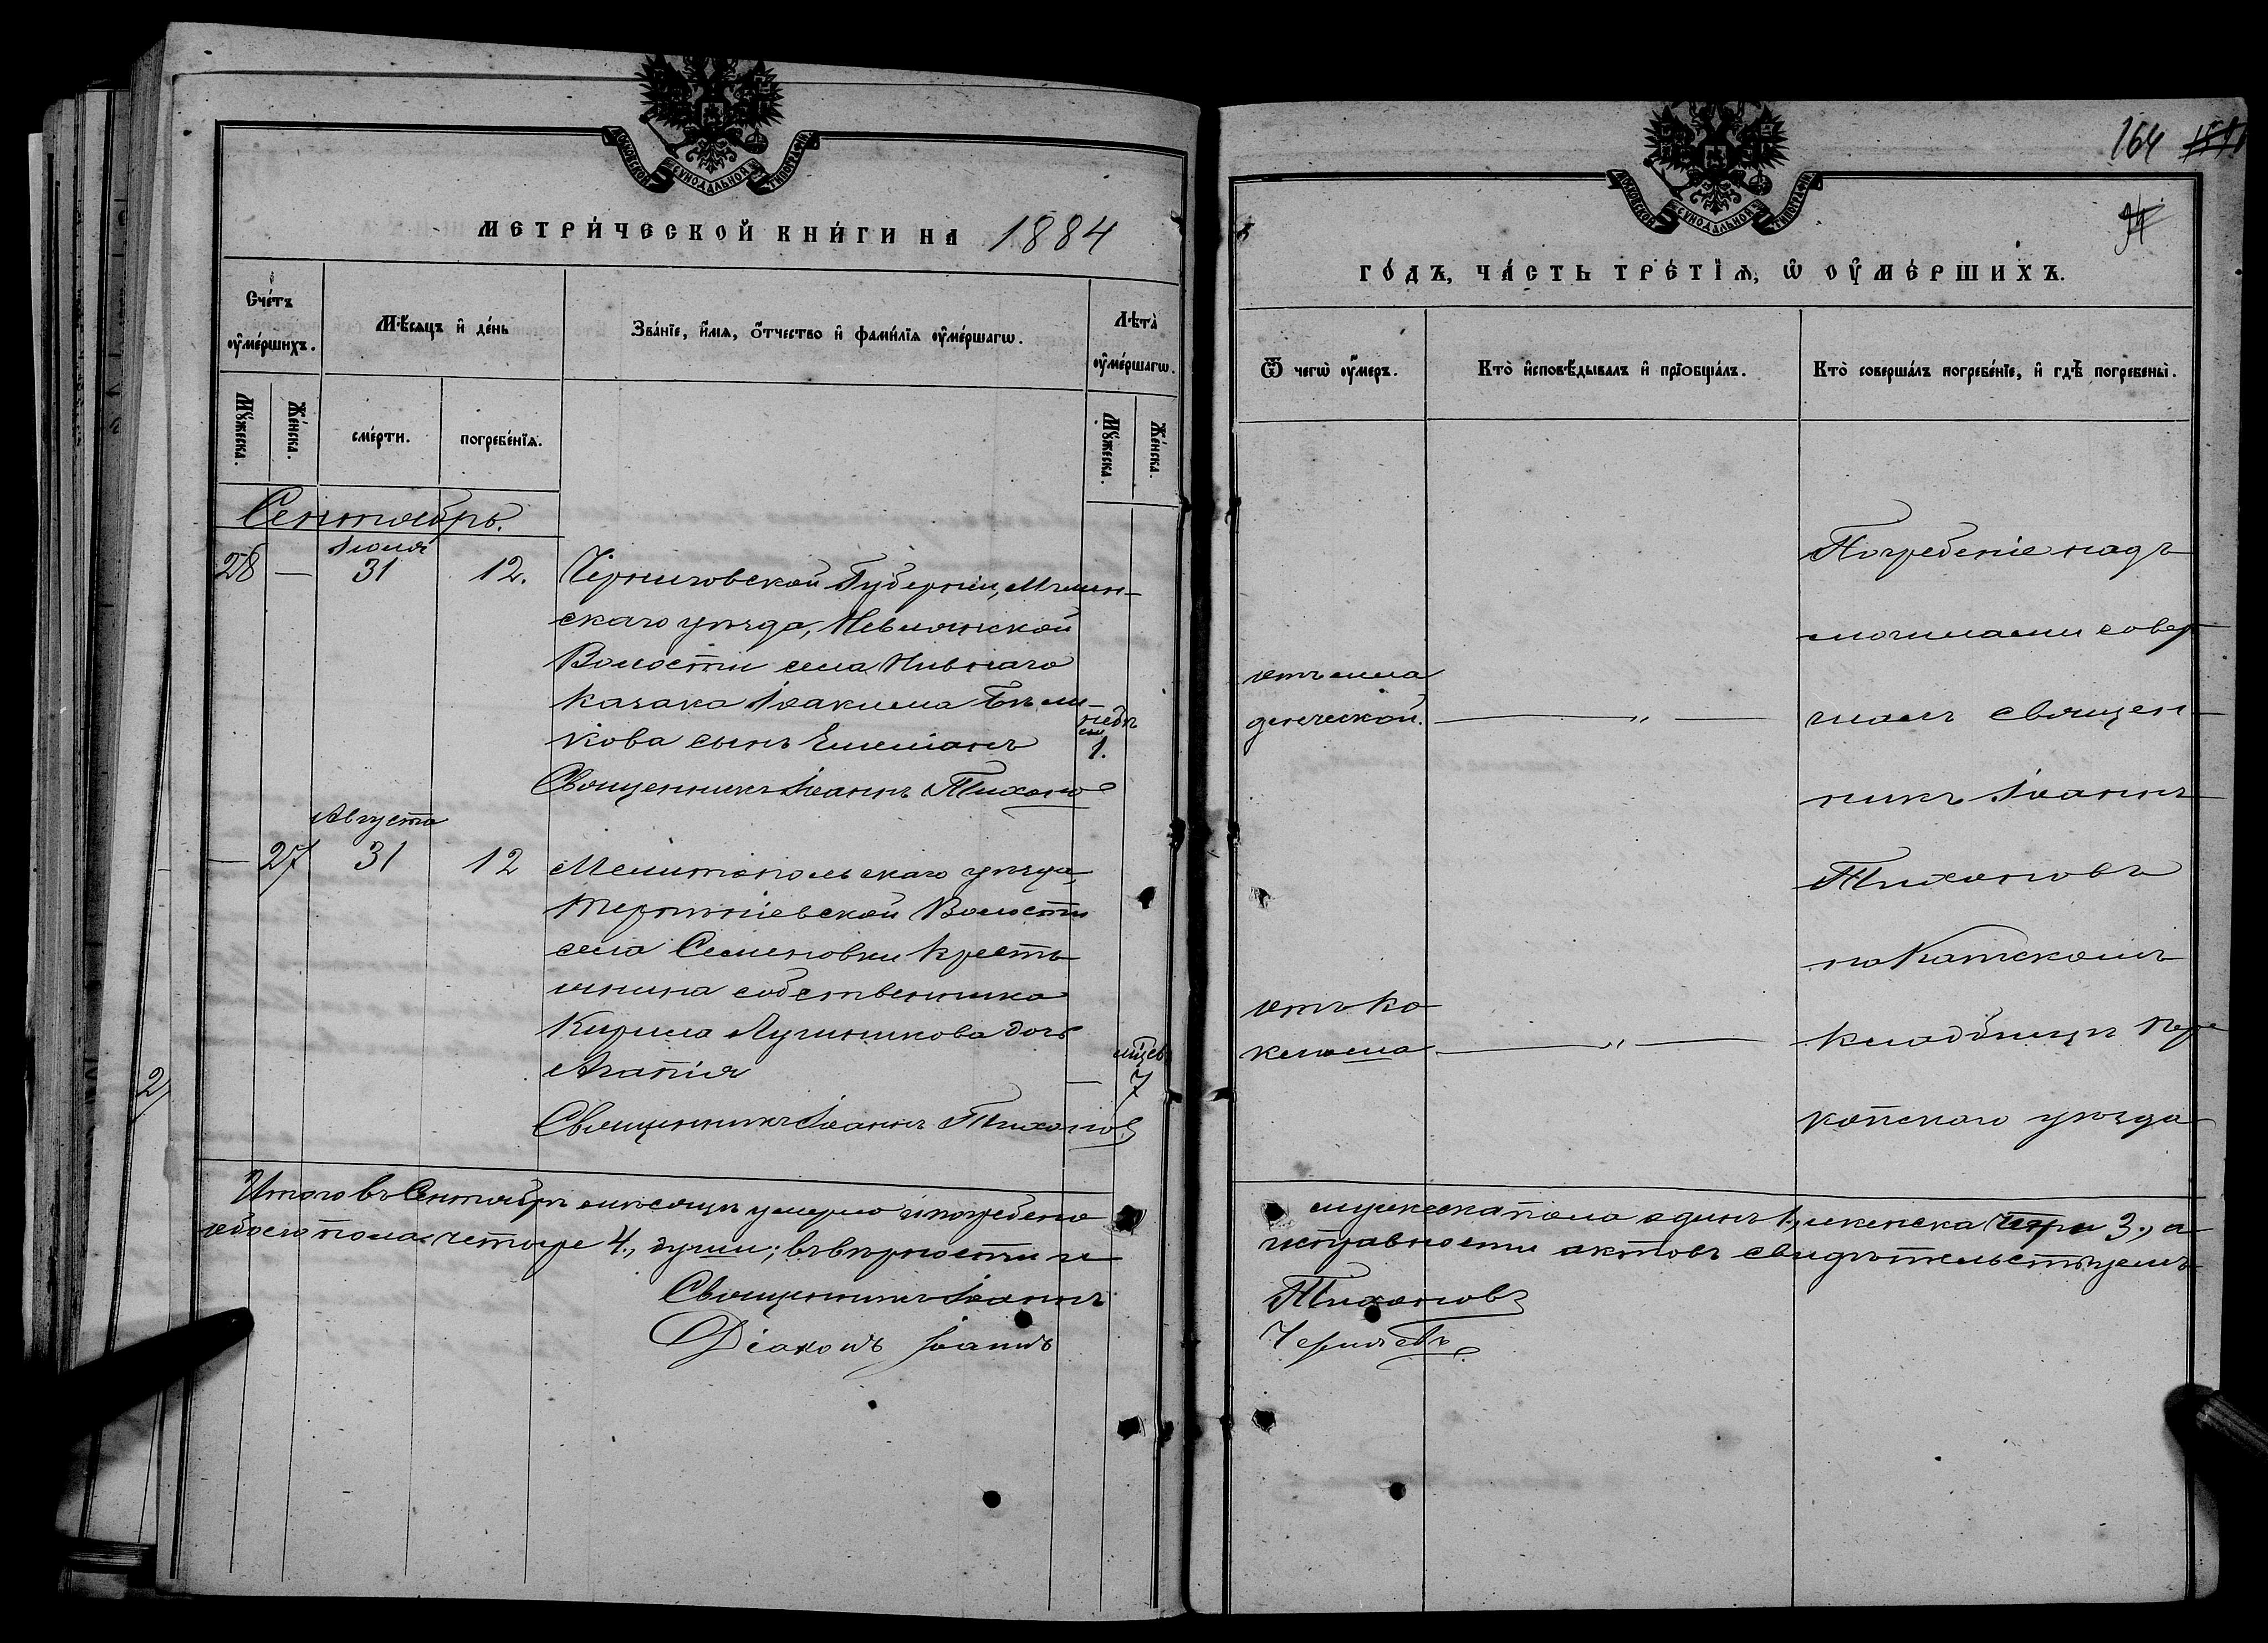 МОСКОВСКОЙ СѴНОДАЛЬНОЙ ТИПОГРАФІИ
МЕТРИ́ЧЕСКОЙ КНИ́ГИ НА 1884
Сче́тъ оу҆ме́ршихъ.
Мѣ́сяцъ и҆ де́нь
Зва́нїе, и҆́мѧ, ѻ҆́тчество и҆ фами́лїѧ оу҆ме́ршагѡ.
Лѣта̀ оу҆ме́ршагѡ.
Мꙋ́жеска.
Же́нска.
сме́рти.
погребе́нїѧ.
Мꙋ́жеска.
Же́нска.
Сентябрь.
28 — Іюля 31 12.
Черниговской Губерніи, Мглин-
скаго уѣзда, Нивлянской
Волости села Нивнаго
казака Іоакима Бѣли-
кова сынъ Емеліанъ
1.
Священникъ Іоаннъ Тихоно
— 27 Августа 31 12
Мелитопольскаго уѣзда,
Терпѣніевской Волости
села Семеновки Кресть
янина собственника
Кирила Лучникова дочь
Агапія
— 7
Священникъ Іоаннъ Тихонов
Итого въ Сентябрѣ мѣсяцѣ умерло и погребено
обоего пола четыре 4., души; въ вѣрности и
Священникъ Іоаннъ
Діаконъ Іоаннъ
2
МОСКОВСКОЙ СѴНОДАЛЬНОЙ ТИПОГРАФІИ
164
ГО́ДЪ, ЧА́СТЬ ТРЕ́ТЇѦ, Ѡ҆ ОУ҆МЕ́РШИХЪ.
Ѿ чегѡ̀ оу҆́меръ.
Кто̀ и҆сповѣ́дывалъ и҆ прїѻбща́лъ.
Кто̀ соверша́лъ погребе́нїе, и҆ гдѣ̀ погребены̀.
отъ мла
денческой. — " —
отъ ко
клюша — " —
Погребеніе надъ
могилами совер
шалъ священ
никъ Іоаннъ
Тихоновъ
на Катскомъ
кладбищѣ Пере
копскаго уѣзда
мужеска пола одинъ 1., женска три 3., а
исправности актовъ свидѣтельствуемъ
Тихоновъ
Чернявъ